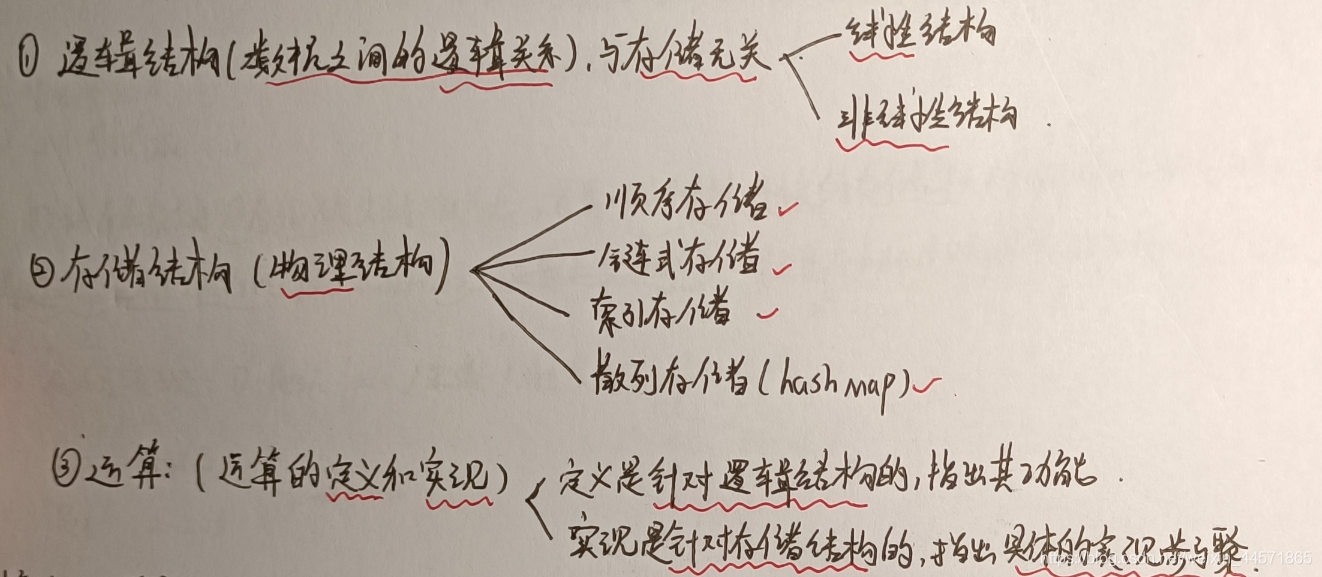 ① 逻辑结构(数据之间的逻辑关系),与存储无关
线性结构
非线性结构.
② 存储结构(物理结构)
顺序存储✓
链式存储✓
索引存储✓
散列存储(hash map)✓
③运算:(运算的定义和实现)
定义是针对逻辑结构的,指出其功能.
实现是针对存储结构的,指出具体的实现步骤.